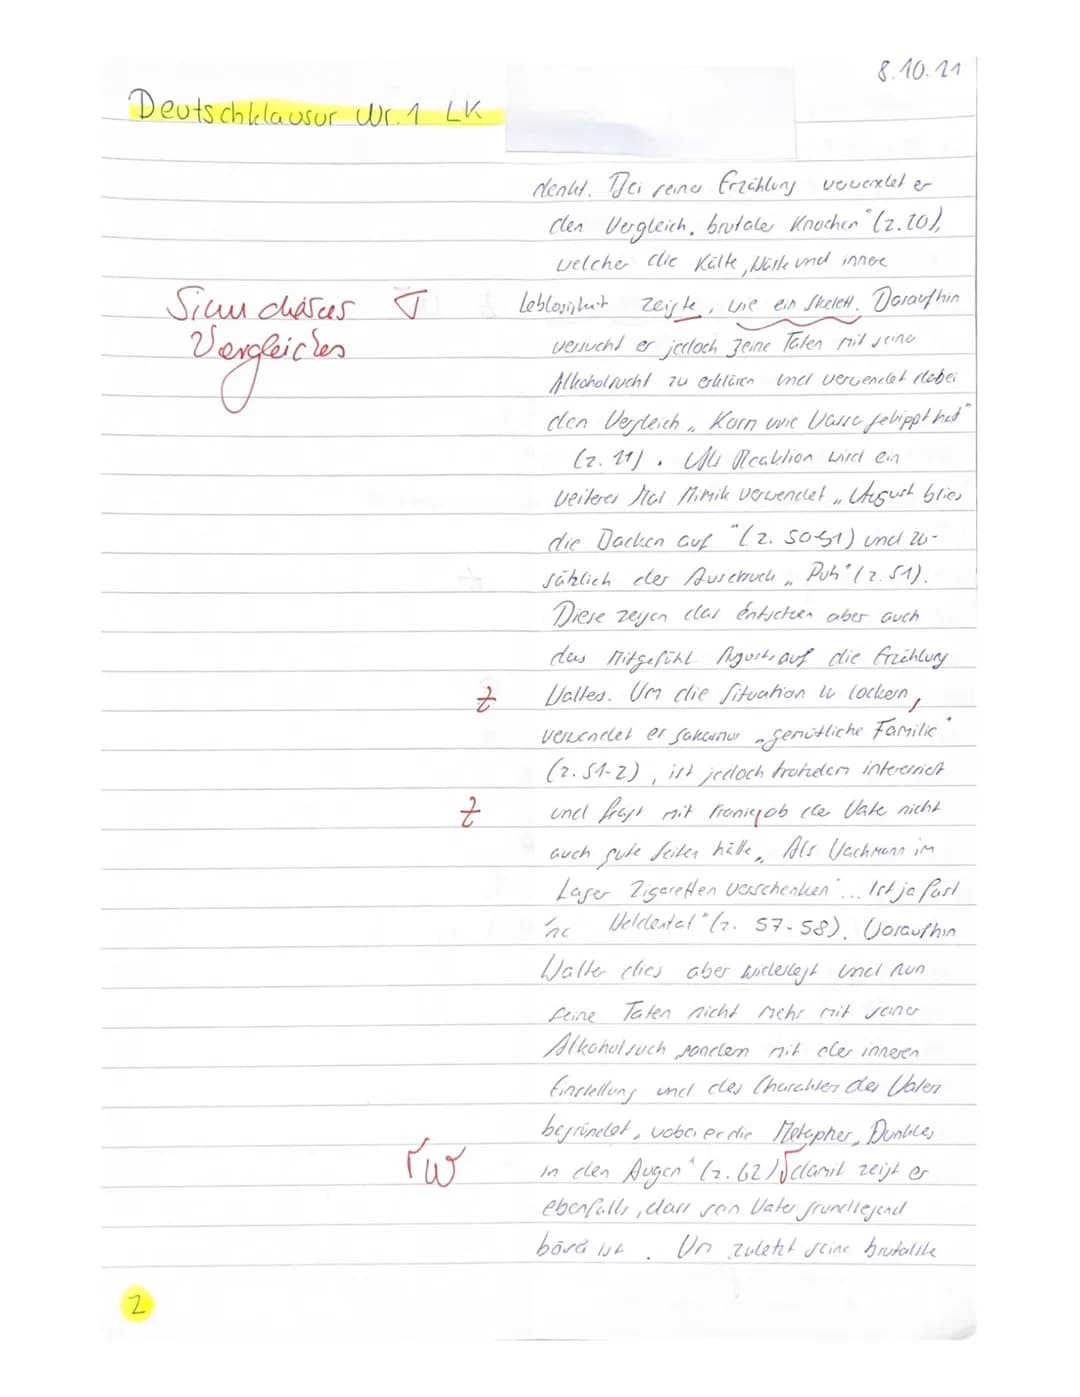 8.10.21
Deutschklausur Nr. 1 LK
denkt. Bei seiner Erzählung verwendet er
den Vergleich „brutaler Knochen" (z. 20),
welcher die Kälte, Härte und innere
Sinn dieses
Leblosigkeit zeigte, wie ein Skelett. Daraufhin
Vergleiches
versucht er jedoch seine Taten mit seiner
Alkoholsucht zu erklären und verwendet dabei
den Vergleich „Korn wie Wasser gekippt hat"
(z. 21). Als Reaktion wird ein
weiteres Mal Mimik verwendet „August blies
die Backen auf" (z. 50-51) und zu-
sätzlich der Ausdruck „Puh" (z. 51).
Diese zeigen das Entsetzen aber auch
das Mitgefühl Augusts auf die Erzählung
Z Walters. Um die Situation zu lockern,
verwendet er „gemütliche Familie"
(z. 51-2), ist jedoch trotzdem interessiert
Z und fragt mit Ironie, ob der Vater nicht
auch gute Seiten hätte „Als Wachmann im
Lager Zigaretten verschenken ... Ist ja fast
'ne Heldentat" (z. 57-58). Woraufhin
Walter dies aber widerlegt und nun
seine Taten nicht mehr mit seiner
Alkoholsuch sondern mit der inneren
Einstellung und des Charakters des Vaters
begründet, wobei er die Metapher „Dunkles
rw in den Augen" (z. 62) damit zeigt er
ebenfalls, dass sein Vater grundlegend
böse ist. Um zuletzt seine brutalste
2